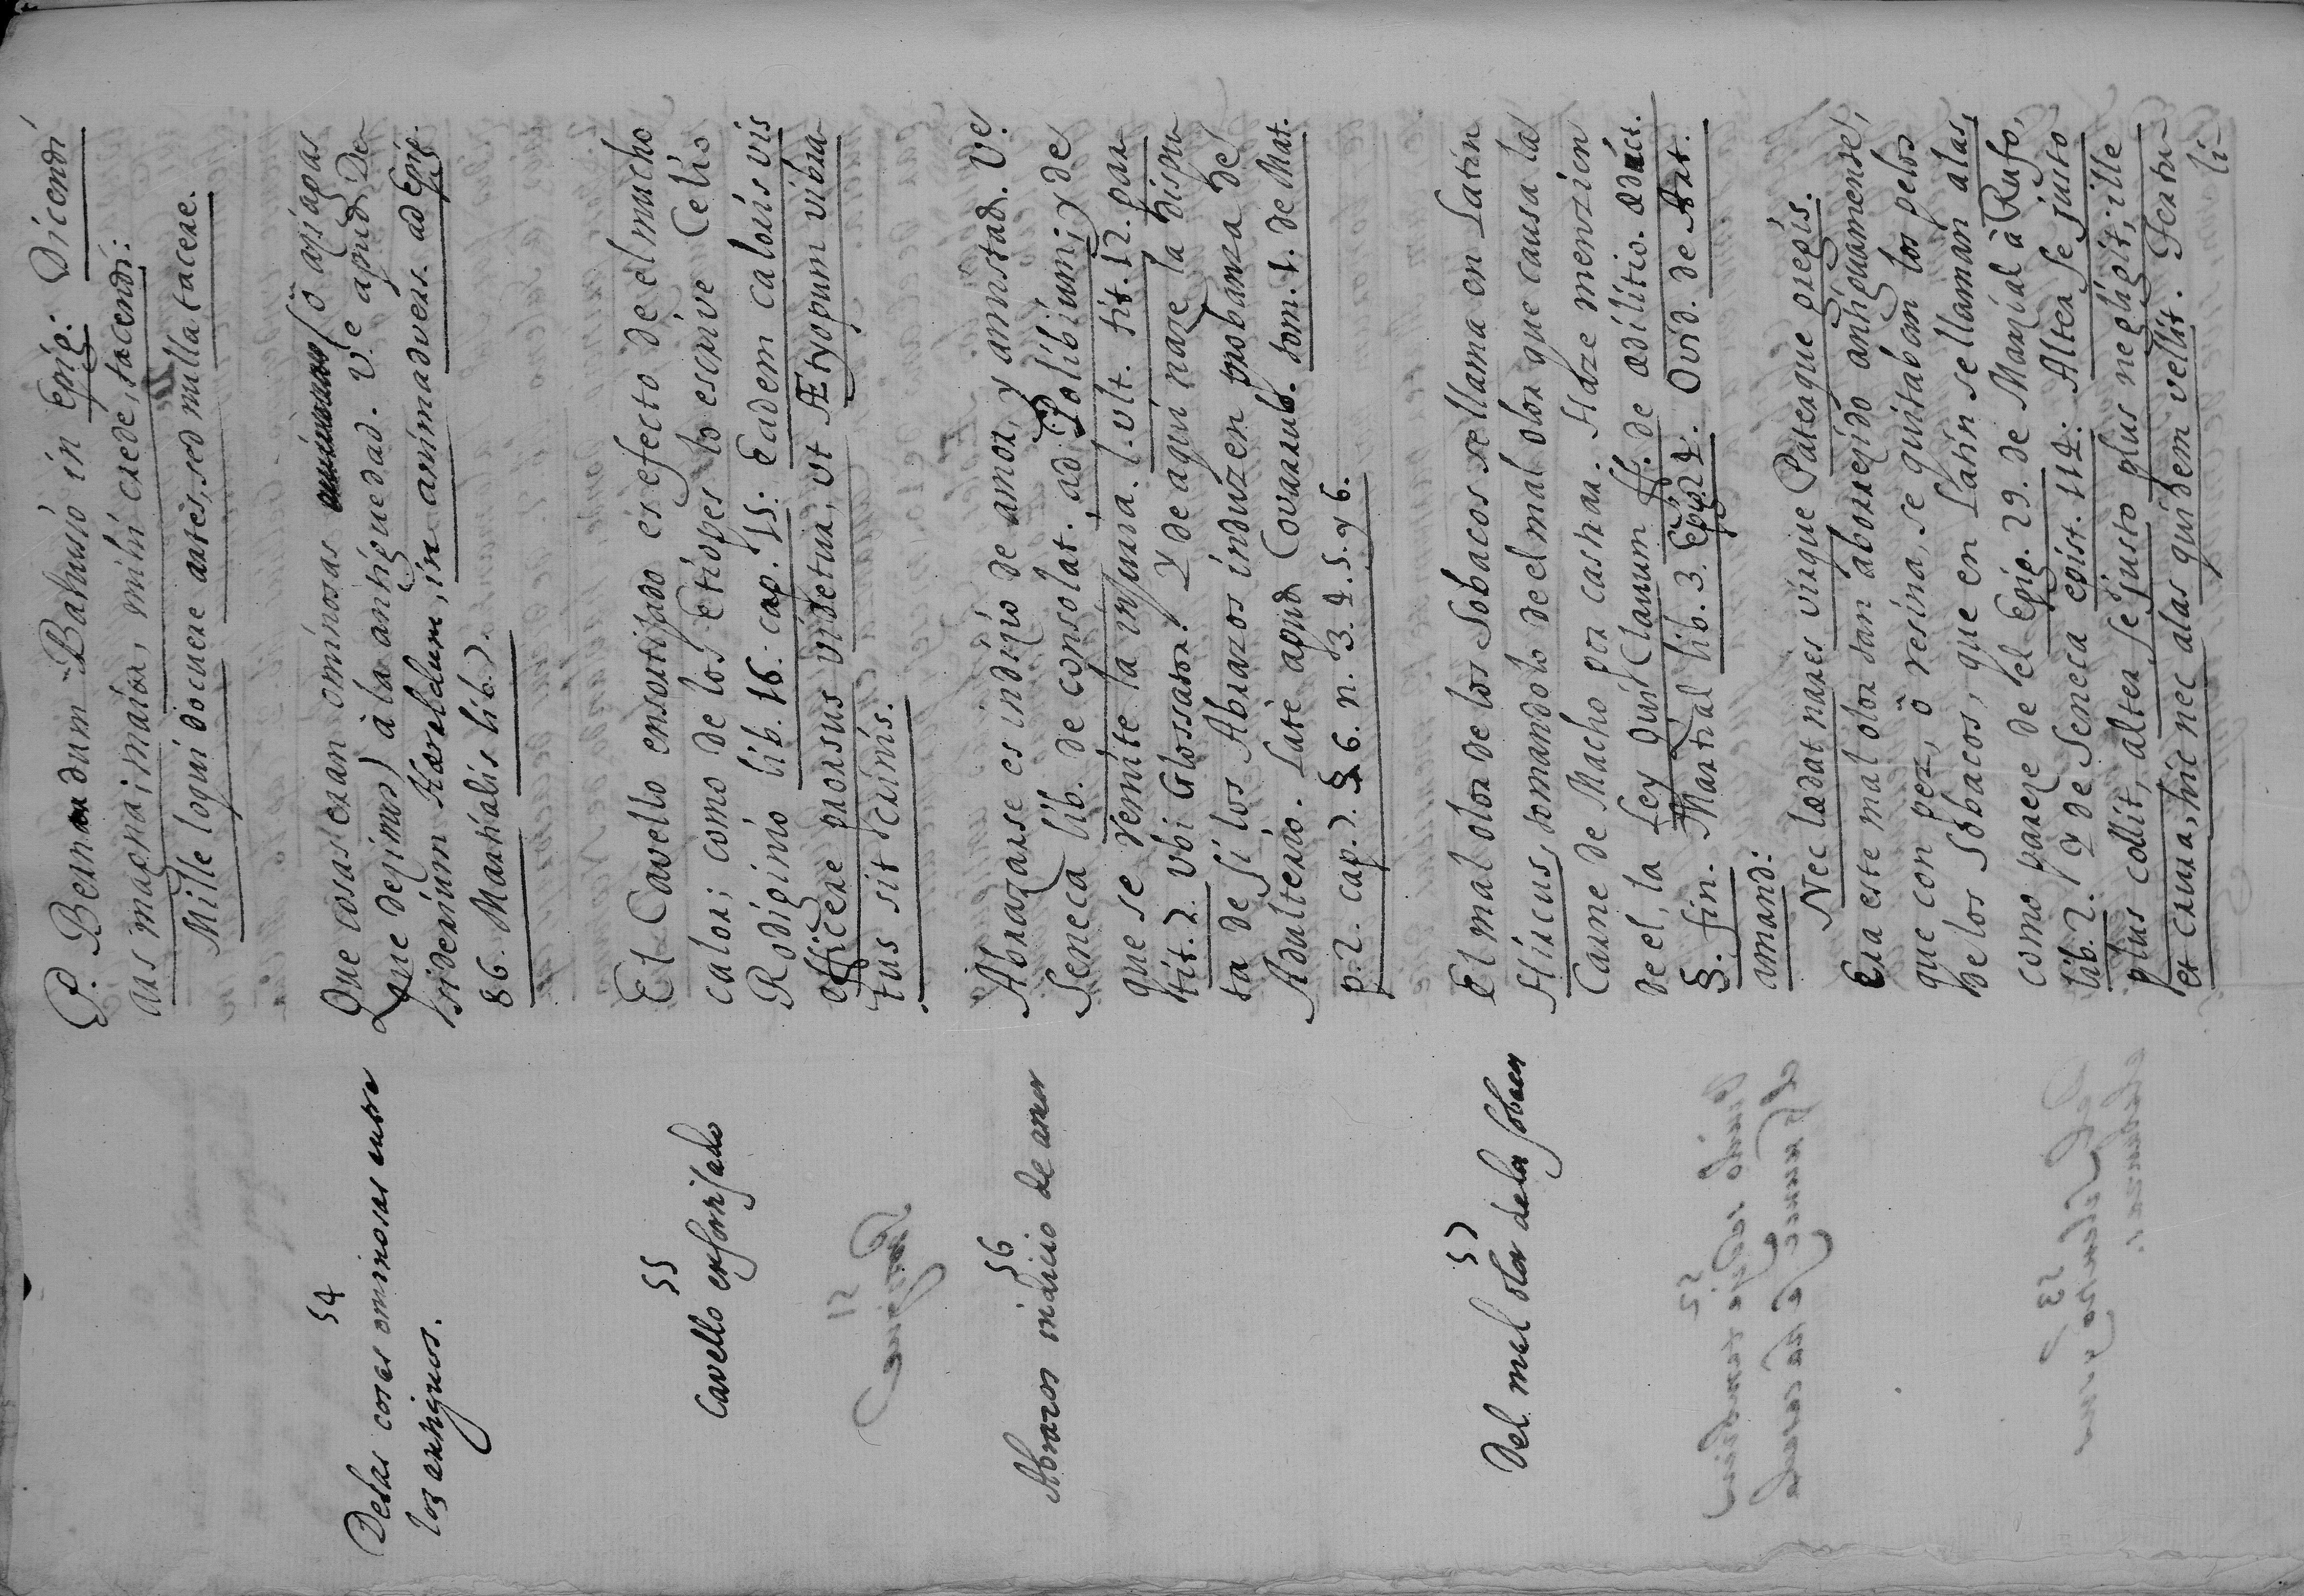 P. Bernardum Bahusio in Epig: Dicendi
ars magna; maior, mihi crede, tacendi:
Mille loqui docuere artes, sed nulla tacere.
54
Delas cosas ominosas entre
los antiguos.
Que cosas eran ominosas (ô aziagas
que dezimos) à la antiguedad. Vê apud De
siderium Hæreldum, in animadvers. ad Epig.
86. Martialis lib. 7.
55
Cavello ensortisado
El Cavello ensortijado es efecto de el mucho
calor; como de los Etiopes lo escrive Celio
Rodiginio lib. 16. cap. 15: Eadem caloris vis
efficere prorsus videtur, vt Ætyopum vibra
tus sit crinis.
56
Abrazos indicio de amor
Abrazarse es indizio de amor, y amistad. Ve
Seneca lib. de consolat. ad Polibium; y de
que se remite la injuria. l. vlt. tit. 12. par
tit. 7. Vbi Glossator. Y de aqui naze la dispu
ta de si los Abrazos induzen probanza de
Adulterio. Latè apud Covarrub. tom. 1. de Mat.
p. 2. cap. 7. § 6. n. 3. 4. 5. y 6.
57
Del mal olor delos Sobacos
El mal olor de los Sobacos se llama en Latin
Hircus, tomandolo de el mal olor que causa la
Carne de Macho por castrar. Haze menzion
de el, la Ley Quid Clarum ff. de ædilitio. ædict.
§. fin. Martial lib. 3. Epig. 24. Ovid. de Art.
amand:
Nec lædat nares virque Paterque gregis.
Era este mal olor tan aborrezido antiguamente,
que con pez, ô resina, se quitaban los pelos
de los Sobacos, que en Latin se llaman alas,
como pareze de el Epig. 29. de Marzial à Rufo,
lib. 2. Y de Seneca epist. 114. Alter se justo
plus collit, alter se justo plus negligit; ille
et crura, hic nec alas quidem vellit. Tertu-
li-